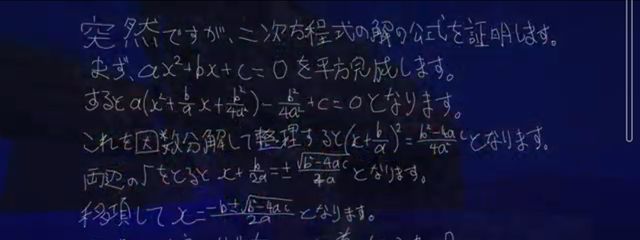 突然ですが、二次方程式の解の公式を証明します。
まず、ax²+bx+c=0を平方完成します。
するとa(x²+b/a x+b²/4a²)-b²/4a+c=0となります。
これを因数分解して整理すると(x+b/a)²=b²-4ac/4a²となります。
両辺の√をとるとx+b/2a=±√b²-4ac/2aとなります。
移項してx=-b±√b²-4ac/2aとなります。